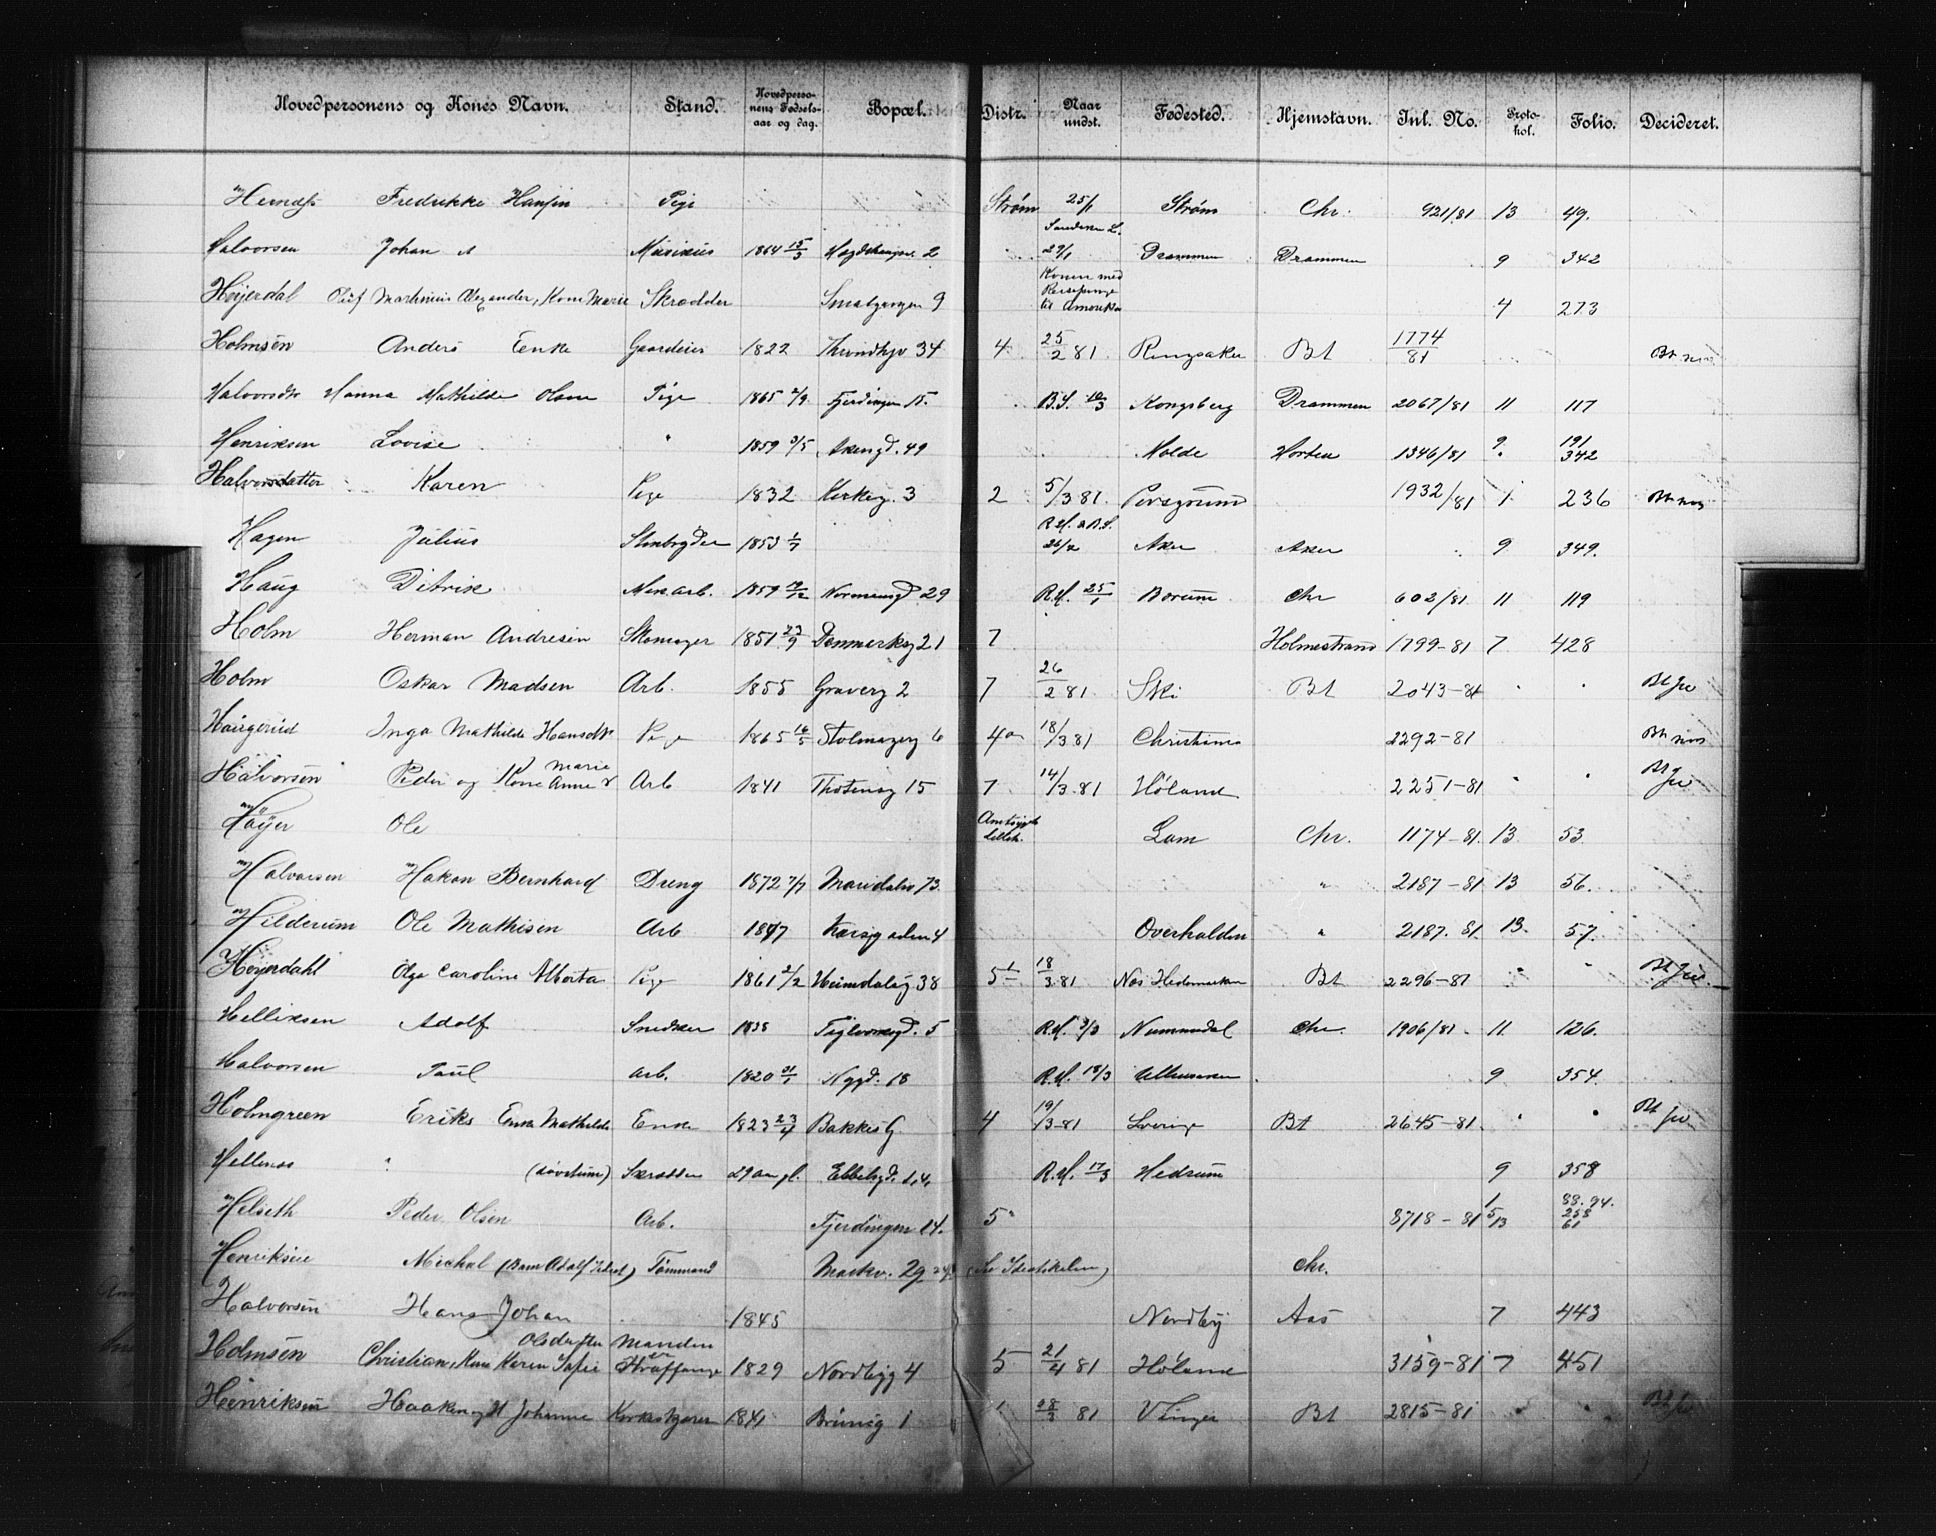 Hovedpersonens og Kones Navn. Stand. Hovedpersonens Fødselsaar og dag. Bopæl. Distr. Naar undst. Fødested. Hjemstavn. Inl. No. Protokol. Folio. Decideret.
Fredrikke Hansen Pige Strøm 25/1 Strøm Chr. 921/81 13 49.
Halvorsen Johan A Musikus 1864 15/3 2 29/1 Drammen Drammen 9 342
Høijerdal Oluf Martinius Alexander, Kone Marie Skrædder Smalgangen 9 Konen med Reisepenge til Amerika 4 273
Holmsen Anders Enke Gaardeier 1822 Trondhjv 34 4 25/2 81 Ringsaker Bt 1774/81 Bt
Halvorsdtr Hanna Mathilde Olsen Pige 1865 2/9 Fjerdingen 15. B.S. 10/3 Kongsberg Drammen 2067/81 11 117
Henriksen Lovise " 1859 3/5 Akersgd. 49 Molde Horten 1346/81 9 191 342
Halvorsdatter Karen Pige 1832 Kirkeg. 3 2 5/3 81 Porsgrund 1932/81 1 236 Bt
Hagen Julius Stenbryder 1853 1/7 26/2 Aker Aker 9 349.
Haug Ditrik Mek.arb. 1859 Normannsgd 29 R.H. 25/1 Borum Chr 602/81 11 119
Holm Herman Andresen Skomager 1851 23/9 Danmarksg 21 7 Holmestrand 1799-81 7 428
Holm Oskar Madsen Arb. 1855 Graverg 2 7 26/2 81 Ski Bt 2043-81 Bt
Haugerud Inga Mathilde Hansdtr Pige 1865 16/5 Stolmagerg 6 4a 18/3 81 Christiania 2292-81 Bt
Halvorsen Peder og Kone Anne Marie Arb 1841 Thotensg 15 7 14/3 81 Høland 2251-81 Bt
Høijer Ole Lom Chr. 1174-81. 13 53
Halvorsen Hakon Bernhard Dreng 1872 7/7 Maridalsv. 73 " 2187-81 13 56.
Hilderum Ole Mathisen Arb 1847 4 Overhalden " 2187. 81. 13. 57.
Høijerdahl Olga Caroline Alberta Pige 1861 2/2 Heimdalsg 38 5 18/3 81 Næs Hedemarken Bt 2296-81 Bt
Helliksen Adolf Snedker 1838 Teglverksgd. 5 R.H. 3/3 Nummedal Chr. 1906/81 11. 126.
Halvorsen Paul Arb. 1820 31/1 Nygd. 18 R.H. 18/3 Ullensaker 9 354.
Holmgreen Eriks Enke Mathilde Enke 1823 23/4 BakkesG. 4 19/3-81 Sverige Bt 2645-81. Bt
Hellenes " Skrædder 29 aar gl. R.H. 17/3 Hedrum 9 358
Helseth Peder Olsen Arb. Fjerdingen 14. 5 8718-81 1 5 13 88. 94. 258 61
Henriksen Michal (Barn Adolf ) Tømmand Markv. 29 Chr.
Halvorsen Hans Johan 1845 Nordby Aas 7 443
Holmsen Christian, Kone Karen Sofie Olsdatter Manden er Straffange 1829 Nordbyg 4 5 21/4 81 Høland 3159-81 7 451
Henriksen Haaken og H Johanne Kirketjener 1841 Brunsg 1 1 28/3 81 Vinger Bt 2815-81 Bt